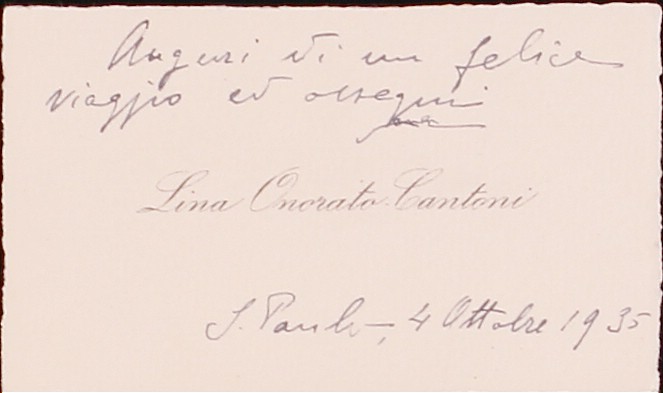 Auguri di un felice
viaggio ed ossequi
Lina Onorato Cantoni
S. Paulo, 4 Ottobre 1935